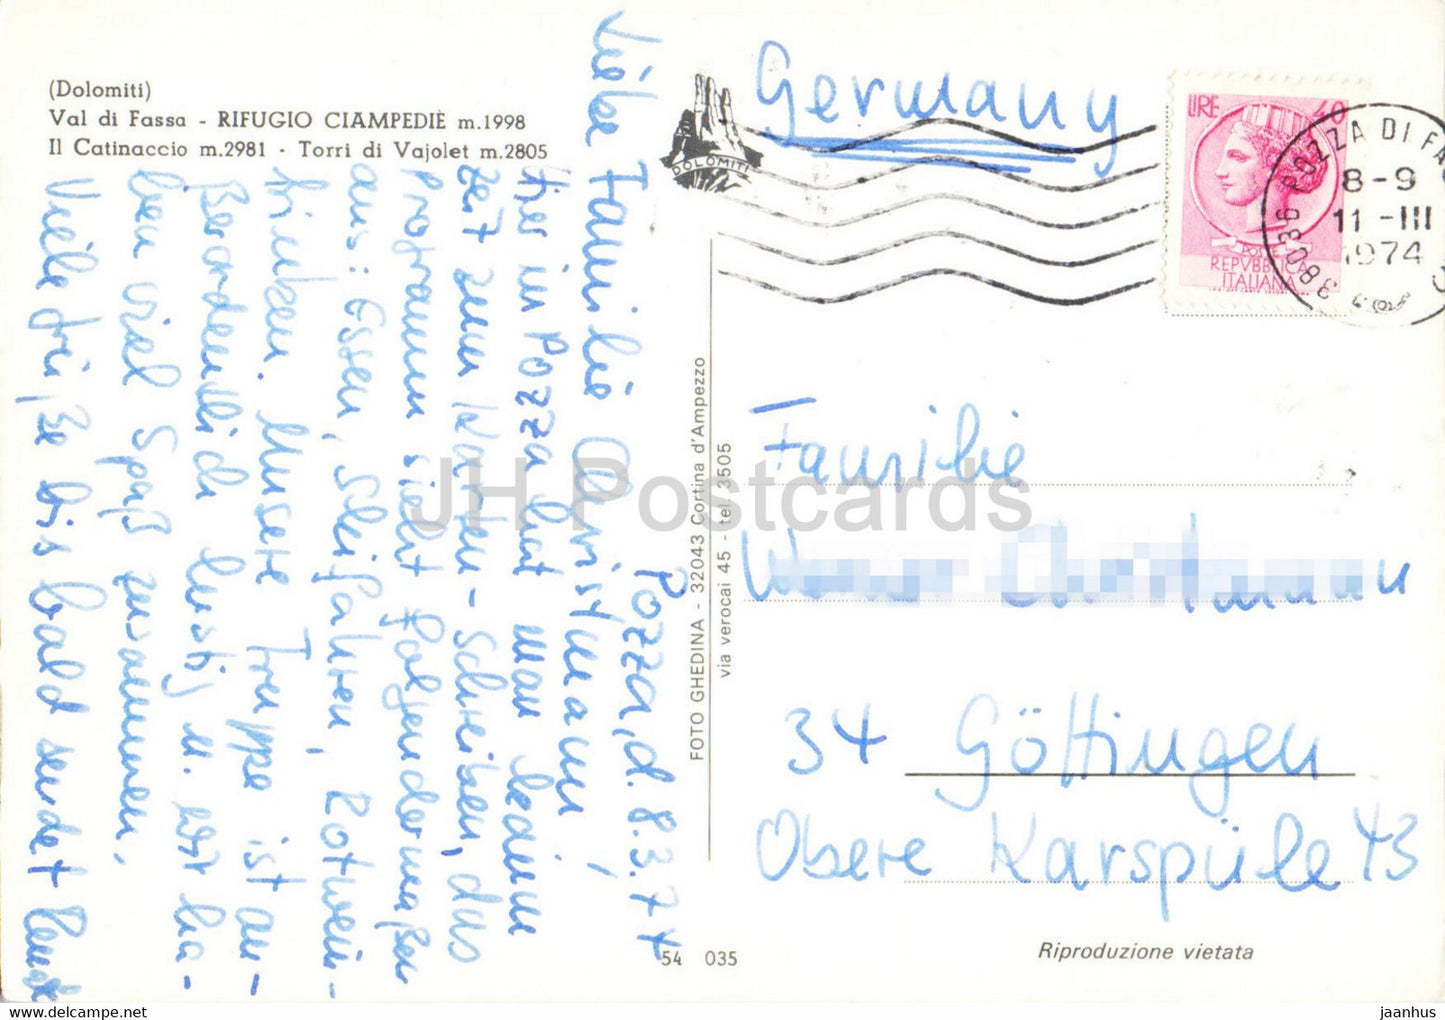 (Dolomiti)
Val di Fassa - RIFUGIO CIAMPEDIÈ m.1998
Il Catinaccio m.2981 - Torri di Vajolet m.2805
Pozza, d. 8.3.74
Liebe Familie Christmann,
Hier in Pozza hat man kaum
Zeit zum Karten-Schreiben, das
Programm sieht folgendermaßen
aus: Essen, Skifahren, Rotwein-
trinken. Unsere Truppe ist au-
ßerordentlich lustig u. wir ha-
ben viel Spaß zusammen.
Viele Grüße bis bald sendet
FOTO GHEDINA - 32043 Cortina d'Ampezzo
via verocai 45 - tel. 3505
DOLOMITI
Germany
LIRE 40
POSTE
REPVBBLICA
ITALIANA
38036 POZZA DI FA
8-9
11-III
1974
Familie
34 Göttingen
Obere Karspüle 43
54 035
Riproduzione vietata
JH Postcards
jaanhus
https://www.ansichtskartenwelt.com